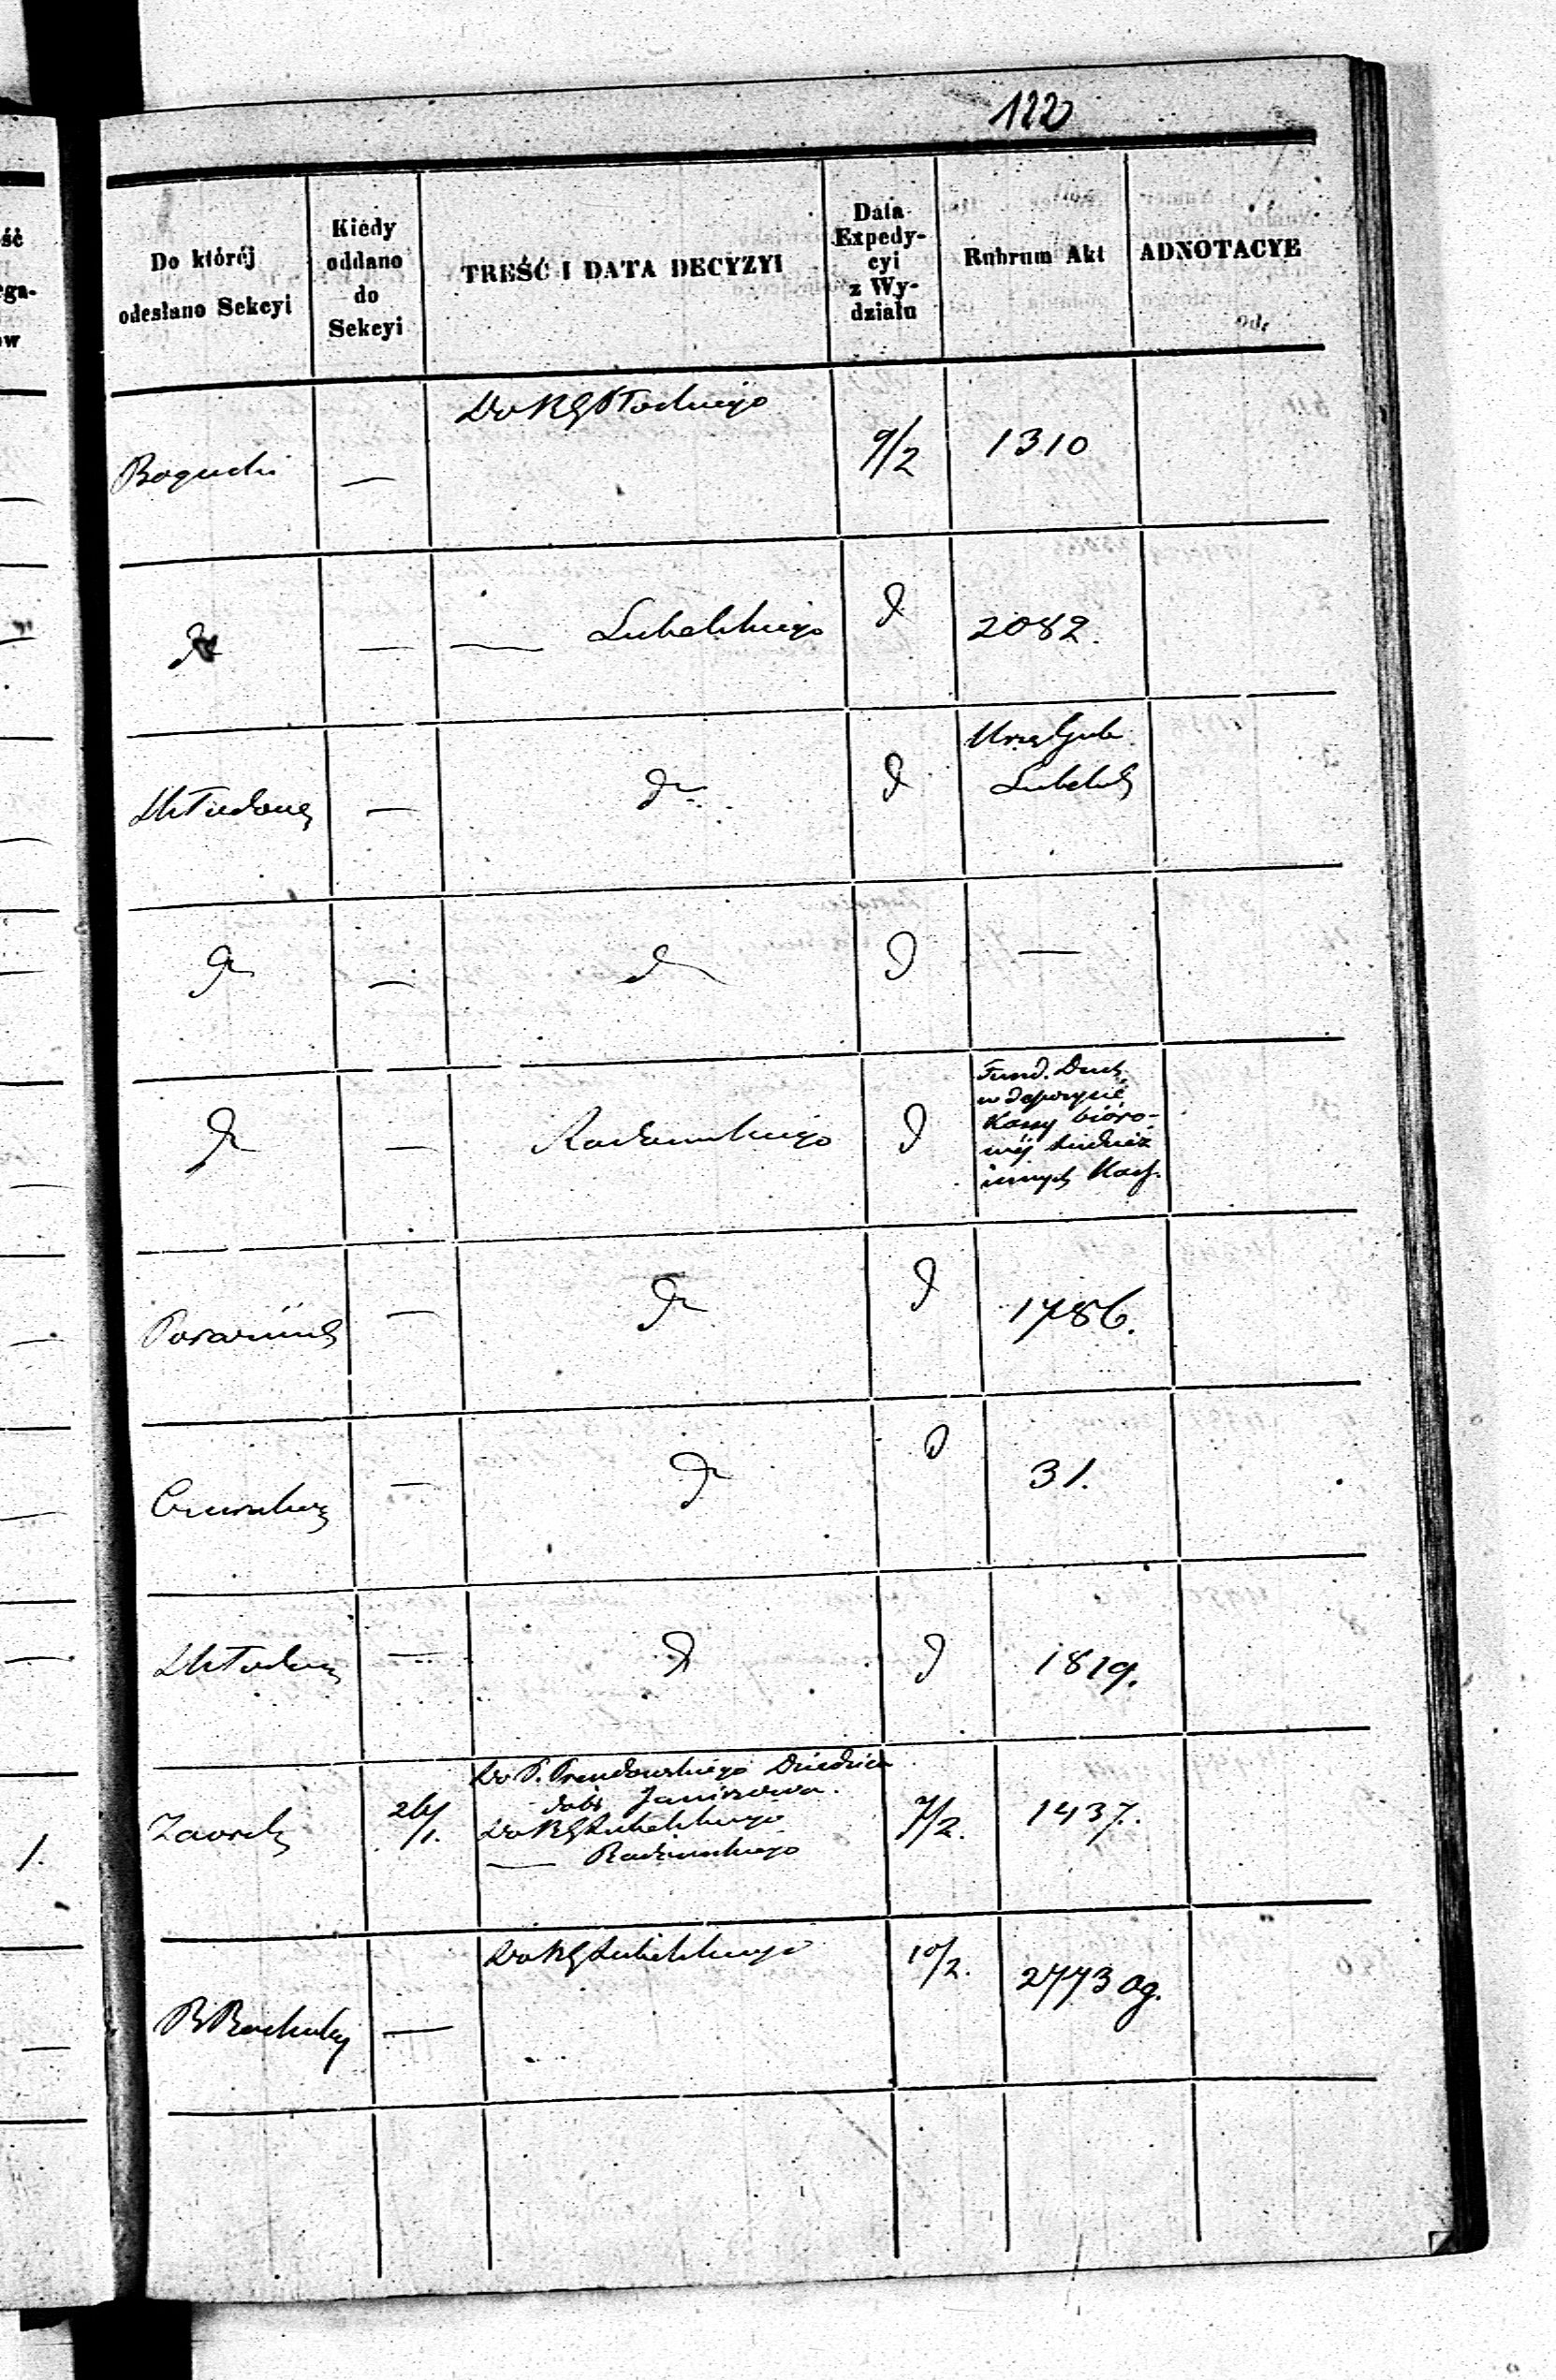 122
Do której odesłano Sekcyi
Kiédy oddano do Sekcyi
TREŚĆ I DATA DECYZYI
Data Expedycyi z Wydziału
Rubrum Akt
ADNOTACYE
Bogucki — Do RG Płockiego 9/2 1310
do — — Lubelskiego d 2082.
— do d Urzą Gub.
Lubelsk
do — do d —
do — Radomskiego d Fund. Duch.
w depozycie
Kassy bióro-
wéj tudzież
innych Kass.
— do d 1786.
— do d 31.
— do d 1819.
26/1. Do P. Prendowskiego Dziedzica
dóbr Janiszowa.
Do RG Lubelskiego
— Radomskiego
7/2. 1437.
— Do RG Lubelskiego 10/2. 2773 og.
1.